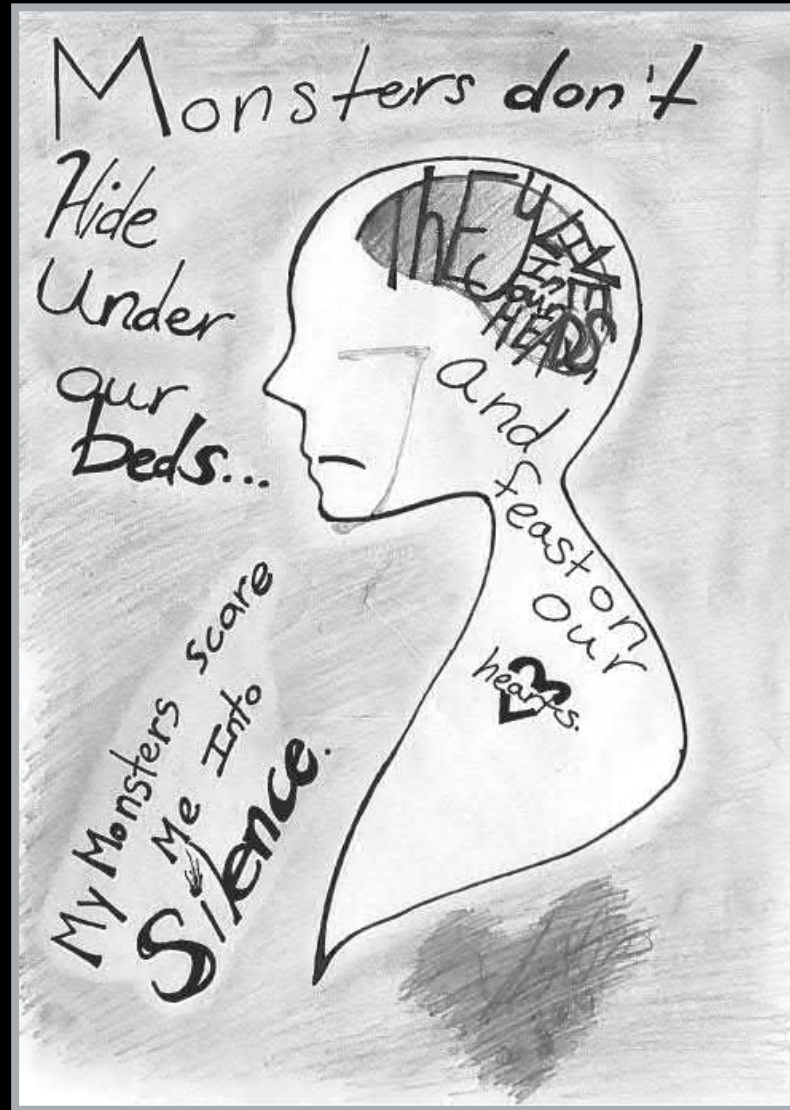 Monsters don't
Hide
Under
our
beds...
They
LIVE
In
our
HEADS,
and
feast on
our
hearts.
My Monsters scare
Me Into
Silence.